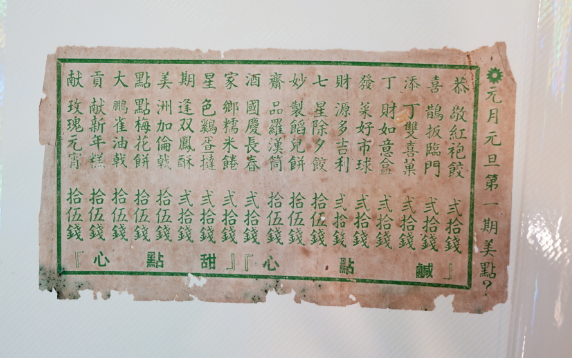 元月元旦第一期美點?
恭敬紅袍餃 弍拾錢
喜鵲扳臨門 弍拾錢
添丁雙喜菓 弍拾錢
丁財如意盒 弍拾錢
發菜好市球 弍拾錢
財源多吉利 弍拾錢
七星除夕餃 弍拾錢
妙製餡兒餅 拾伍錢
齋品羅漢筒 拾伍錢
酒國慶長春 弍拾錢
家鄉糯米錈 弍拾錢
星色鷄蛋撻 弍拾錢
期逢双鳳酥 弍拾錢
美洲加倫戟 拾伍錢
點點梅花餅 拾伍錢
大鵬雀油戟 拾伍錢
貢献新年糕 拾伍錢
献玫瑰元宵 拾伍錢
『鹹點心』
『甜點心』